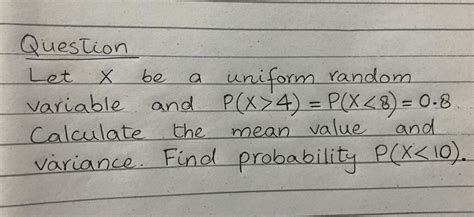 Question
Let X be a uniform random
variable and P(X>4) = P(X<8) = 0.8
Calculate the mean value and
variance. Find probability P(X<10).